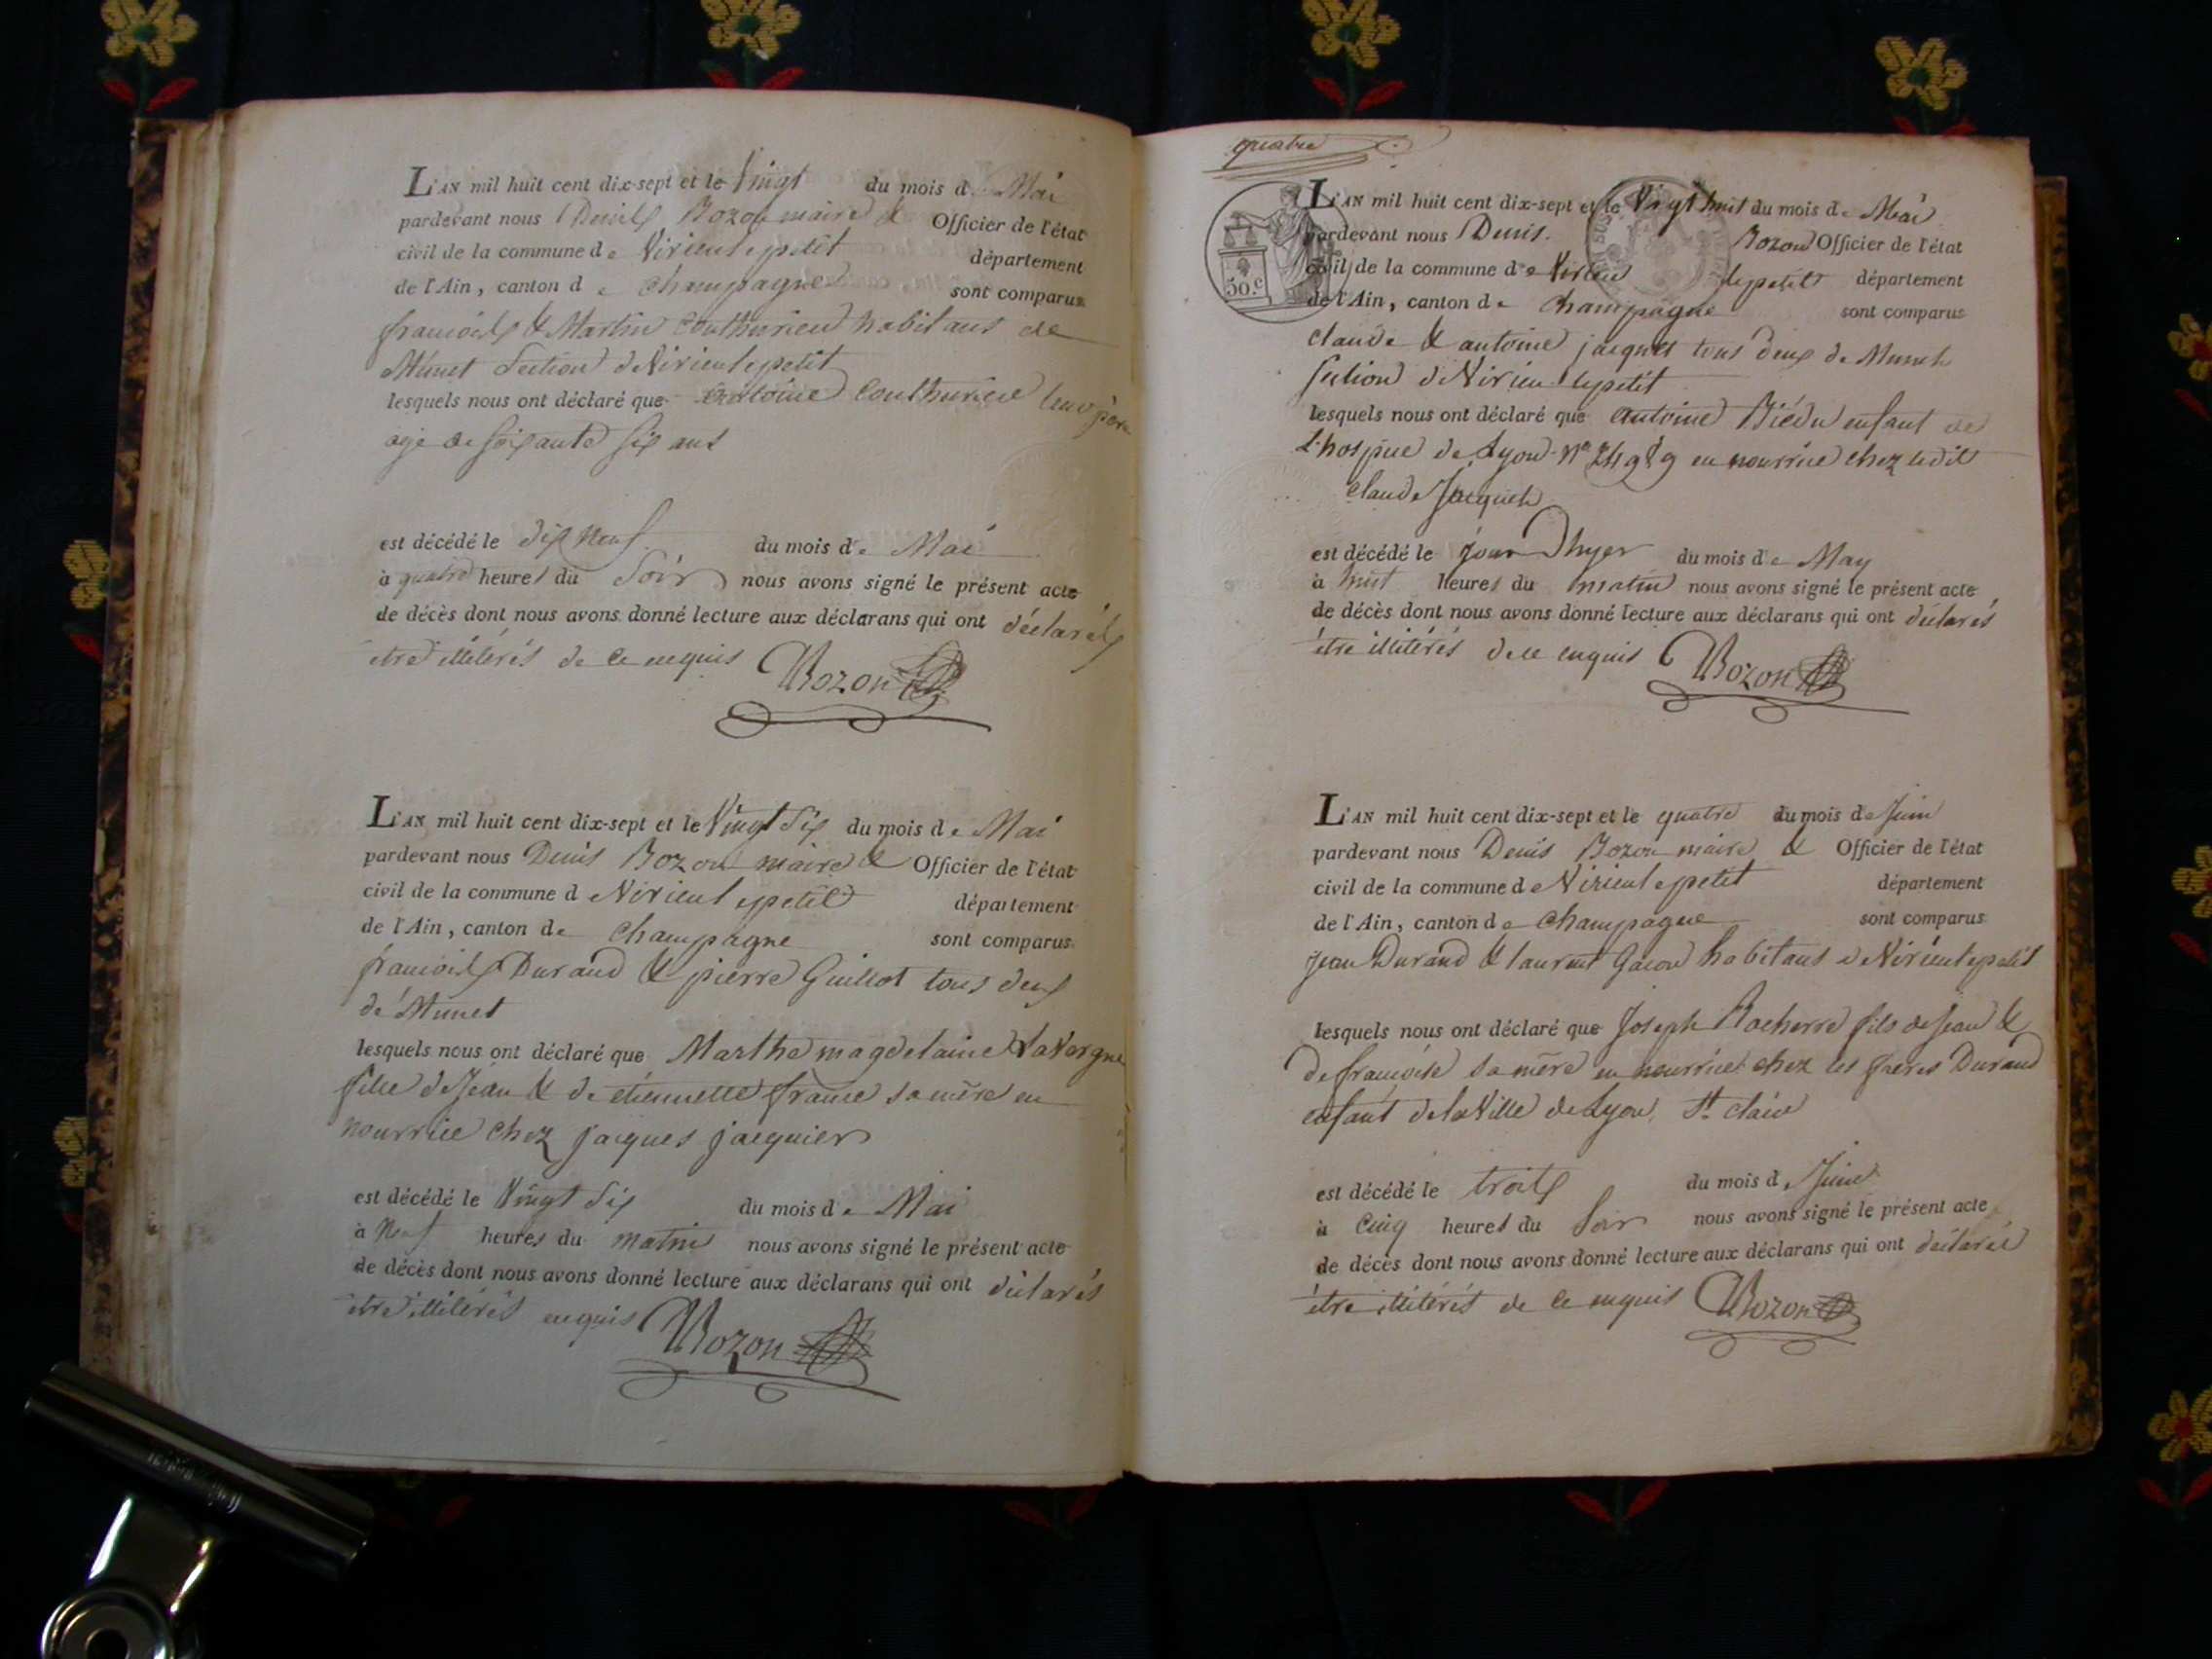 L'AN mil huit cent dix-sept et le Vingt du mois de Mai
pardevant nous Denis Bozon maire & Officier de l'état
civil de la commune de Virieu lepetit département
de l'Ain, canton de Champagne sont comparus
francois & Martin Couthurieu habitans de
Munet Section de Virieu lepetit
lesquels nous ont déclaré que antoine Couthurieu leur père
agé de soixante six ans
est décédé le dix neuf du mois de Mai
à quatre heures du Soir nous avons signé le présent acte
de décès dont nous avons donné lecture aux déclarans qui ont déclarés
être illitérés de ce enquis Bozon
L'AN mil huit cent dix-sept et le Vingt Six du mois de Mai
pardevant nous Denis Bozon maire & Officier de l'état
civil de la commune de Virieu lepetit département
de l'Ain, canton de Champagne sont comparus
francois Durand & pierre Guillot tous deux
de Munet
lesquels nous ont déclaré que Marthe magdelaine LaVergne
fille de Jean & de etiennette france sa mère en
nourrice chez jacques jacquier
est décédé le Vingt Six du mois de Mai
à Neuf heures du matin nous avons signé le présent acte
de décès dont nous avons donné lecture aux déclarans qui ont déclarés
être illitérés enquis Bozon
quatre
50.c
L'AN mil huit cent dix-sept et le Vingt huit du mois de Mai
pardevant nous Denis Bozon Officier de l'état
civil de la commune de Virieu lepetit département
de l'Ain, canton de Champagne sont comparus
claude & antoine jacquet tous deux de Munet
section de Virieu lepetit
lesquels nous ont déclaré que antoine enfant de
L'hospice de Lyon N° en nourrice chez ledit
claude Jacquet
est décédé le jour Dhyer du mois de May
à huit heures du matin nous avons signé le présent acte
de décès dont nous avons donné lecture aux déclarans qui ont déclarés
être illitérés de ce enquis Bozon
L'AN mil huit cent dix-sept et le quatre du mois de Juin
pardevant nous Denis Bozon maire & Officier de l'état
civil de la commune de Virieu lepetit département
de l'Ain, canton de Champagne sont comparus
Jean Durand & laurent habitans de Virieu lepetit
lesquels nous ont déclaré que Joseph fils de Jean &
de francoise sa mère en nourrice chez les freres Durand
enfant de la Ville de Lyon St. clair
est décédé le trois du mois de Juin
à Cinq heures du Soir nous avons signé le présent acte
de décès dont nous avons donné lecture aux déclarans qui ont déclarés
être illitérés de ce enquis Bozon